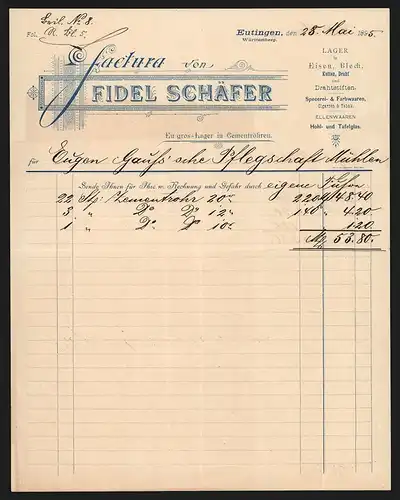 Beil. No 8.
Fol. R. Bl. 5.
Eutingen, den 28. Mai 1895.
Württemberg.
Factura von
FIDEL SCHÄFER
En gros-Lager in Cementröhren.
LAGER
in
Eisen, Blech,
Ketten, Draht
und
Drahtstiften,
Spezerei- & Farbwaaren,
Cigarren & Tabak.
ELLENWAAREN
Hohl- und Tafelglas.
für Eugen Gauß'sche Pflegschaft Mühlen
Sende Ihnen für Ihre w. Rechnung und Gefahr durch eigene Fuhre
22 Stf. Zementrohr 20cm 220 48.40
3 " Do Do 12 " 140 4.20
1 " Do Do 10cm 1.20
M 53.80.